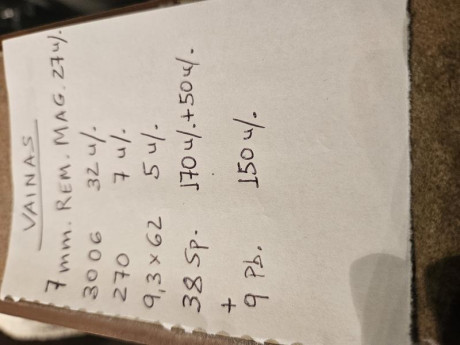 VAINAS
7 mm. REM. MAG. 27 u/.
3006 32 u/.
270 7 u/.
9,3 x 62 5 u/.
38 Sp. 170 u/. + 50 u/.
+
9 Pb. 150 u/.